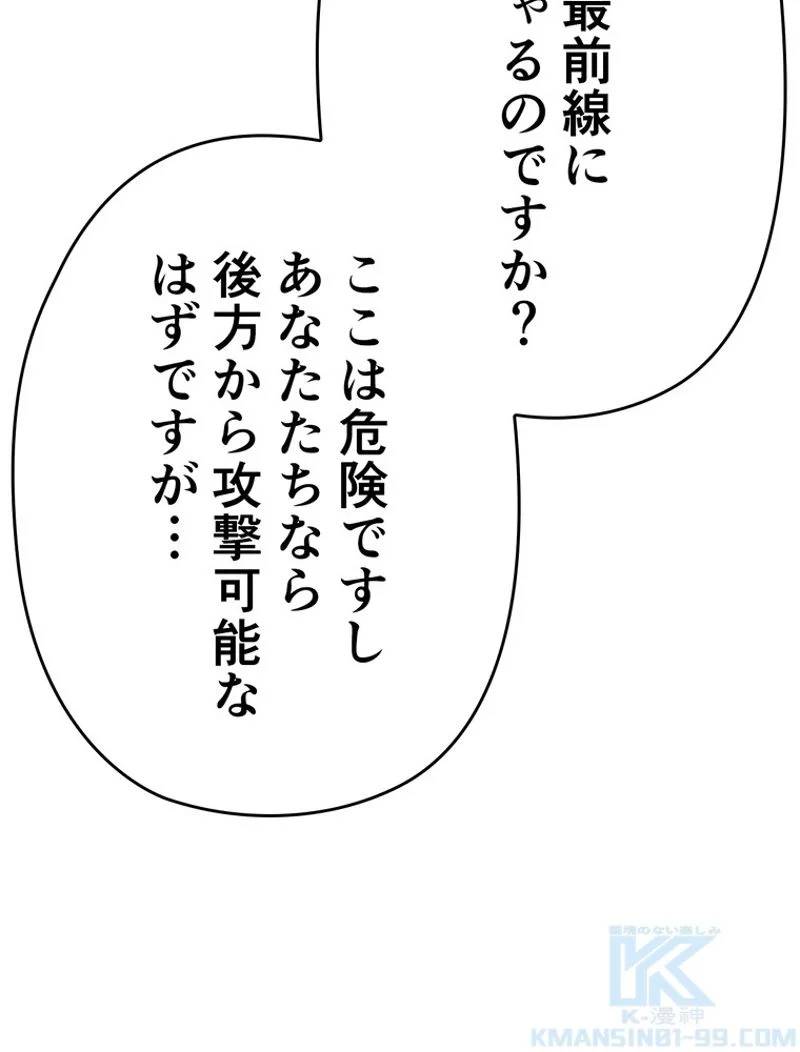 最前線に
ゃるのですか?
ここは危険ですし
あなたたちなら
後方から攻撃可能な
はずですが…
K-漫神
KMANSIN01-99.COM